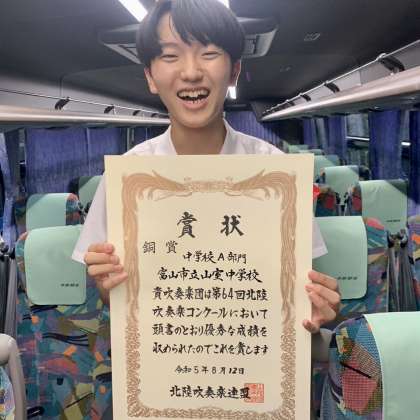 賞状
銅賞
中学校A部門
富山市立山室中学校
貴吹奏楽団は第64回北陸
吹奏楽コンクールにおいて
頭書のとおり優秀な成績を
収められたのでこれを賞します
令和5年8月12日
北陸吹奏楽連盟